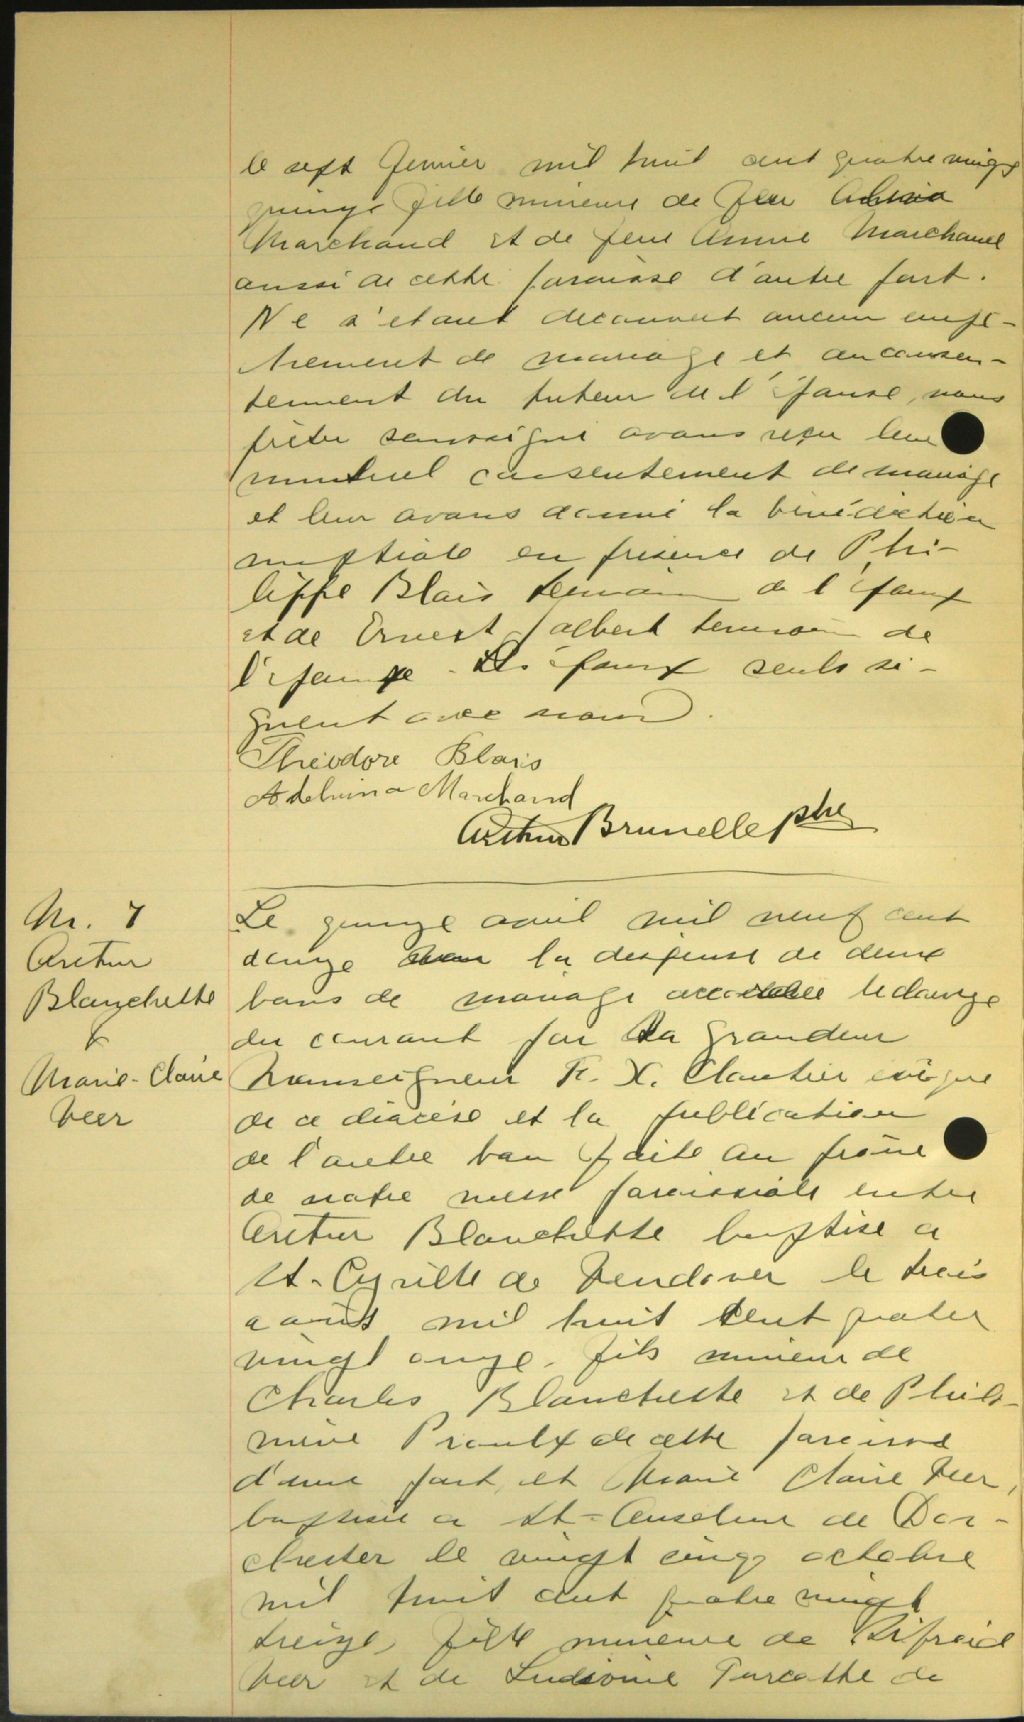 le sept fevrier mil huit cent quatre vingt
quinze fille mineure de feu
Marchand et de feue Marchand
aussi de cette paroisse d'autre part.
Ne s'etant decouvert aucun empe-
chement de mariage et du consen-
tement du tuteur de l'épouse, nous
prêtre soussigné avons reçu leur
mutuel consentement de mariage
et leur avons donné la bénédiction
nuptiale en presence de Phi-
lippe Blais temoin de l'époux
et de Ernest Jalbert temoin de
l'epouse. Les époux seuls si-
gnent avec nous.
Théodore Blais
Adelmina Marchand
Arthur Brunelle ptre
M. 7
Arthur
Blanchette
&
Marie-Claire
Veer
Le quinze avril mil neuf cent
douze vu la dispense de deux
bans de mariage accordée le douze
du courant par Sa Grandeur
Monseigneur F. X. Cloutier evêque
de ce diocèse et la publication
de l'autre ban faite au prône
de notre messe paroissiale entre
Arthur Blanchette baptise a
St-Cyrille de Wendover le trois
aout mil huit cent quatre
vingt onze, fils mineur de
Charles Blanchette et de Philo-
mène Proulx de cette paroisse
d'une part, et Marie Claire Veer,
baptisée a St-Anselme de Dor-
chester le vingt cinq octobre
mil huit cent quatre vingt
treize, fille mineure de
Veer et de Ludivine Turcotte de